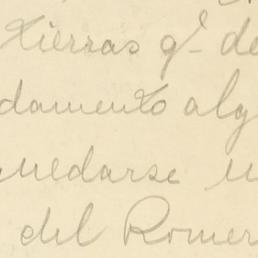 tierras qe de
damento alg
uedarse u
del Romer